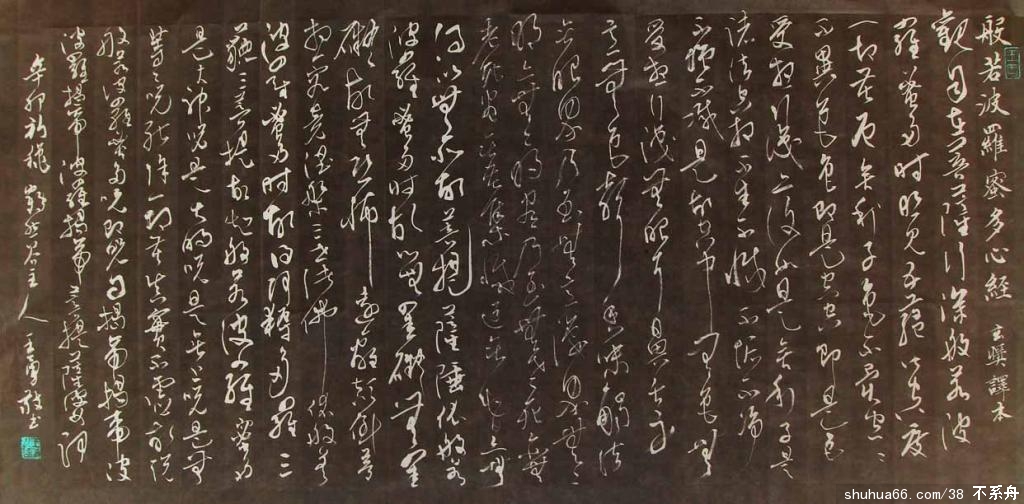 般若波羅蜜多心經 玄奘譯本
觀自在菩薩行深般若波
羅蜜多時照見五蘊皆空度
一切苦厄舍利子色不異空空
不異色色即是空空即是色
受想行識亦復如是舍利子是
諸法空相不生不滅不垢不淨
不增不減是故空中無色無
受想行識無眼耳鼻舌身
意無色聲香味觸法
無眼界乃至無意識界無無
明亦無無明盡乃至無老死亦無
老死盡無苦集滅道無智亦無
得以無所得故菩提薩埵依般若
波羅蜜多時故心無罣礙無罣
礙故無有恐怖遠離顛倒夢
想究竟涅槃三世諸佛依般若
波羅蜜多時故得阿耨多羅三
藐三菩提故知般若波羅蜜多
是大神咒是大明咒是無上咒是無
等等咒能除一切苦真實不虛故說
般若波羅蜜多咒即說咒曰揭帝揭帝波
波羅揭帝波羅揭帝菩提薩婆訶
辛卯初 主人
shuhua66.com/38 不系舟